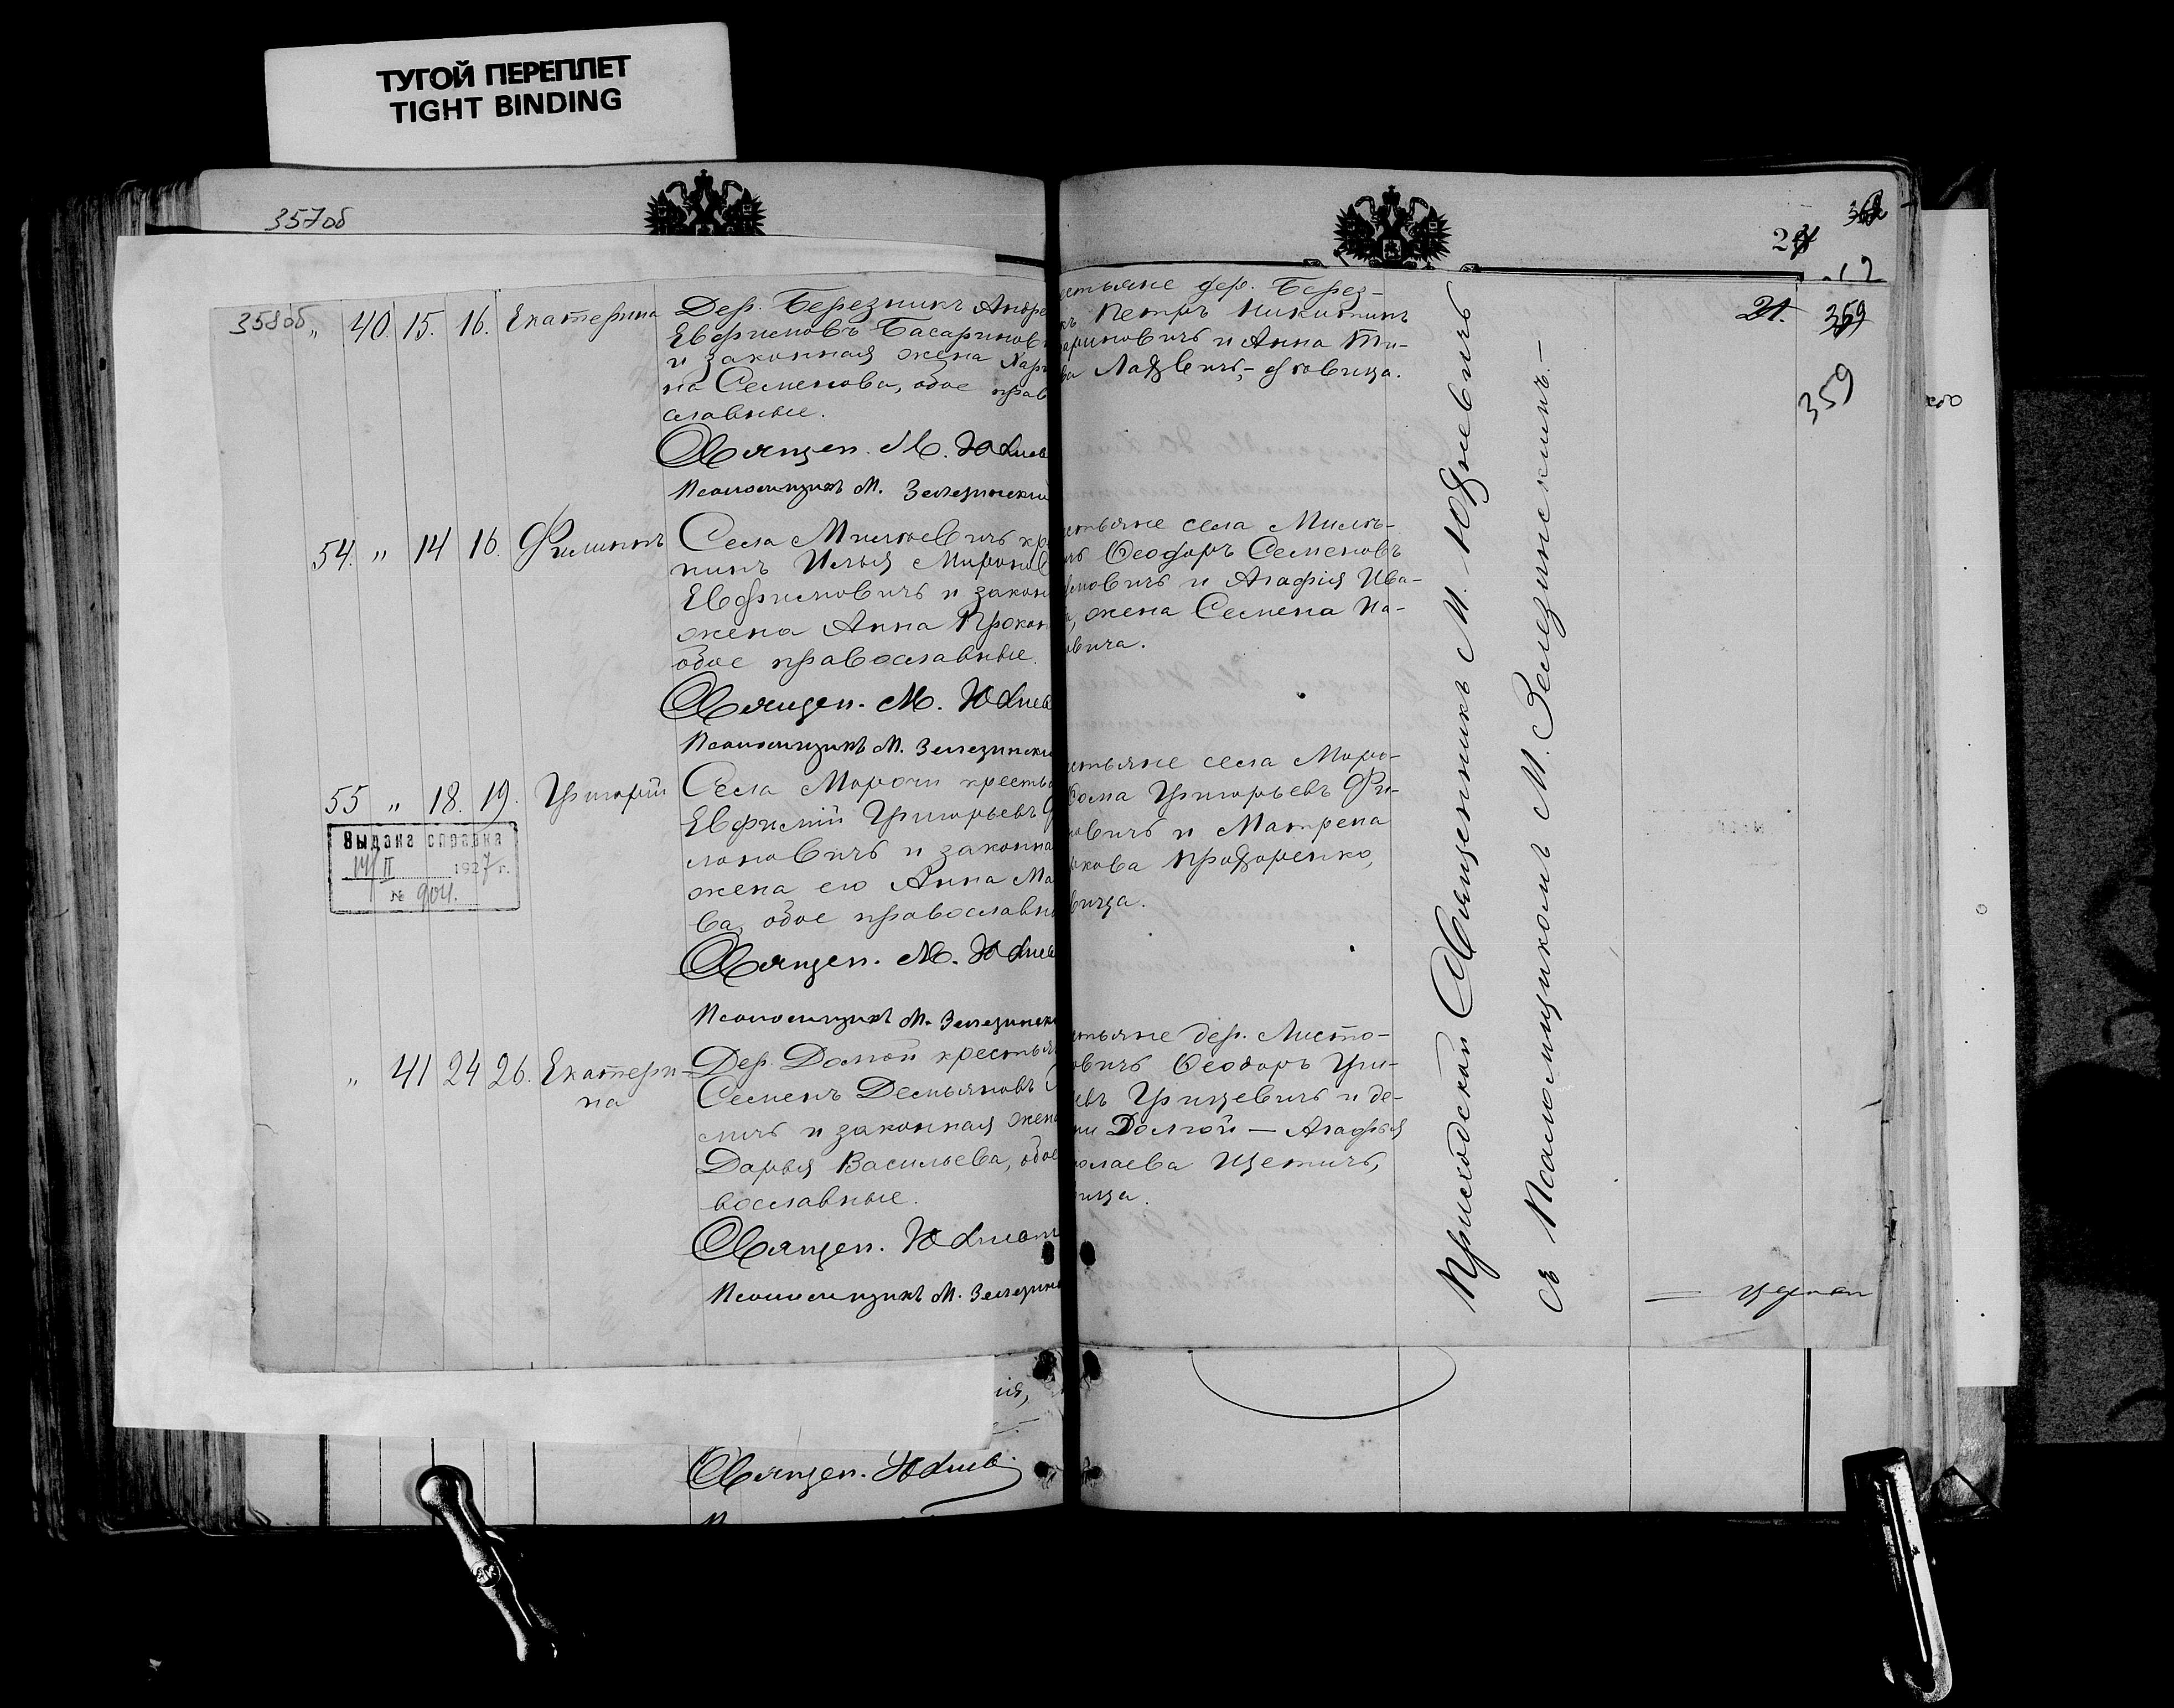 ТУГОЙ ПЕРЕПЛЕТ
TIGHT BINDING
357об
358об
" 40. 15. 16. Екатерина
Дер. Березникъ Андре
Евфимовъ Басаринов
и законная жена Хари
на Семенова, обое прав
славные.
Священ. М. Юзнев
Псаломщикъ М. Зелезинский
54. " 14 16. Филиппъ
Села Милкевичъ кре
нинъ Илья Миронов
Евфимовичъ и закон
жена Анна Прокоп
обое православные.
Священ. М. Юзнев
Псаломщикъ М. Зелезински
55 " 18. 19. Григорій
Села Морочи крестья
Евфимій Григорьевъ Ф
лоновичъ и законна
жена его Анна Ма
ва, обое православны
Священ. М. Юзнев
Псаломщикъ М. Зелезинск
Выдана справка
14/II 1927 г.
№ 904.
" 41 24 26. Екатери-
на
Дер. Долгой крестья
Семенъ Демьяновъ
мичъ и законная жена
Дарья Васильева, обое
вославные.
Священ. Юзнев
Псаломщикъ М. Зелезинс
Священ. Юзнев.
естьяне дер. Берез-
къ Петръ Никитинъ
ариновичъ и Анна Ти-
ва
естьяне села Милк-
чъ Ѳеодоръ Семеновъ
имовичъ и Агафія Ива-
а, жена Семена Па-
овича.
естьяне села Моро-
Ѳома Григорьевъ Фи-
новичъ и Матрена
ркова
вица.
стьяне дер. Листо-
овичъ Ѳеодоръ Гри-
евъ Грицевичъ и де-
ни Долгой — Агафья
олаева Щемичъ,
вица.
Приходскій Священникъ М. Юзневичъ
съ Псаломщикомъ М. Зелезинскимъ.—
21.
359
359